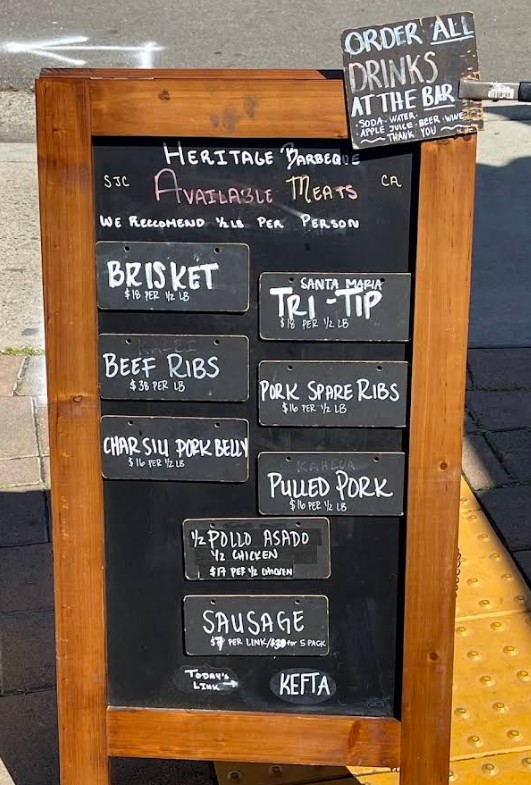 ORDER ALL
DRINKS
AT THE BAR
SODA · WATER ·
APPLE JUICE · BEER · WINE
THANK YOU
HERITAGE BARBEQUE
SJC AVAILABLE MEATS CA
WE RECCOMEND 1/2 LB PER PERSON
BRISKET
$18 PER 1/2 LB
SANTA MARIA
TRI-TIP
$18 PER 1/2 LB
BEEF RIBS
$38 PER LB
PORK SPARE RIBS
$16 PER 1/2 LB
CHAR SIU PORK BELLY
$16 PER 1/2 LB
KAHLUA
PULLED PORK
$16 PER 1/2 LB
1/2 POLLO ASADO
1/2 CHICKEN
$17 PER 1/2 CHICKEN
SAUSAGE
PER LINK/ for 5 PACK
TODAY'S
LINK → KEFTA